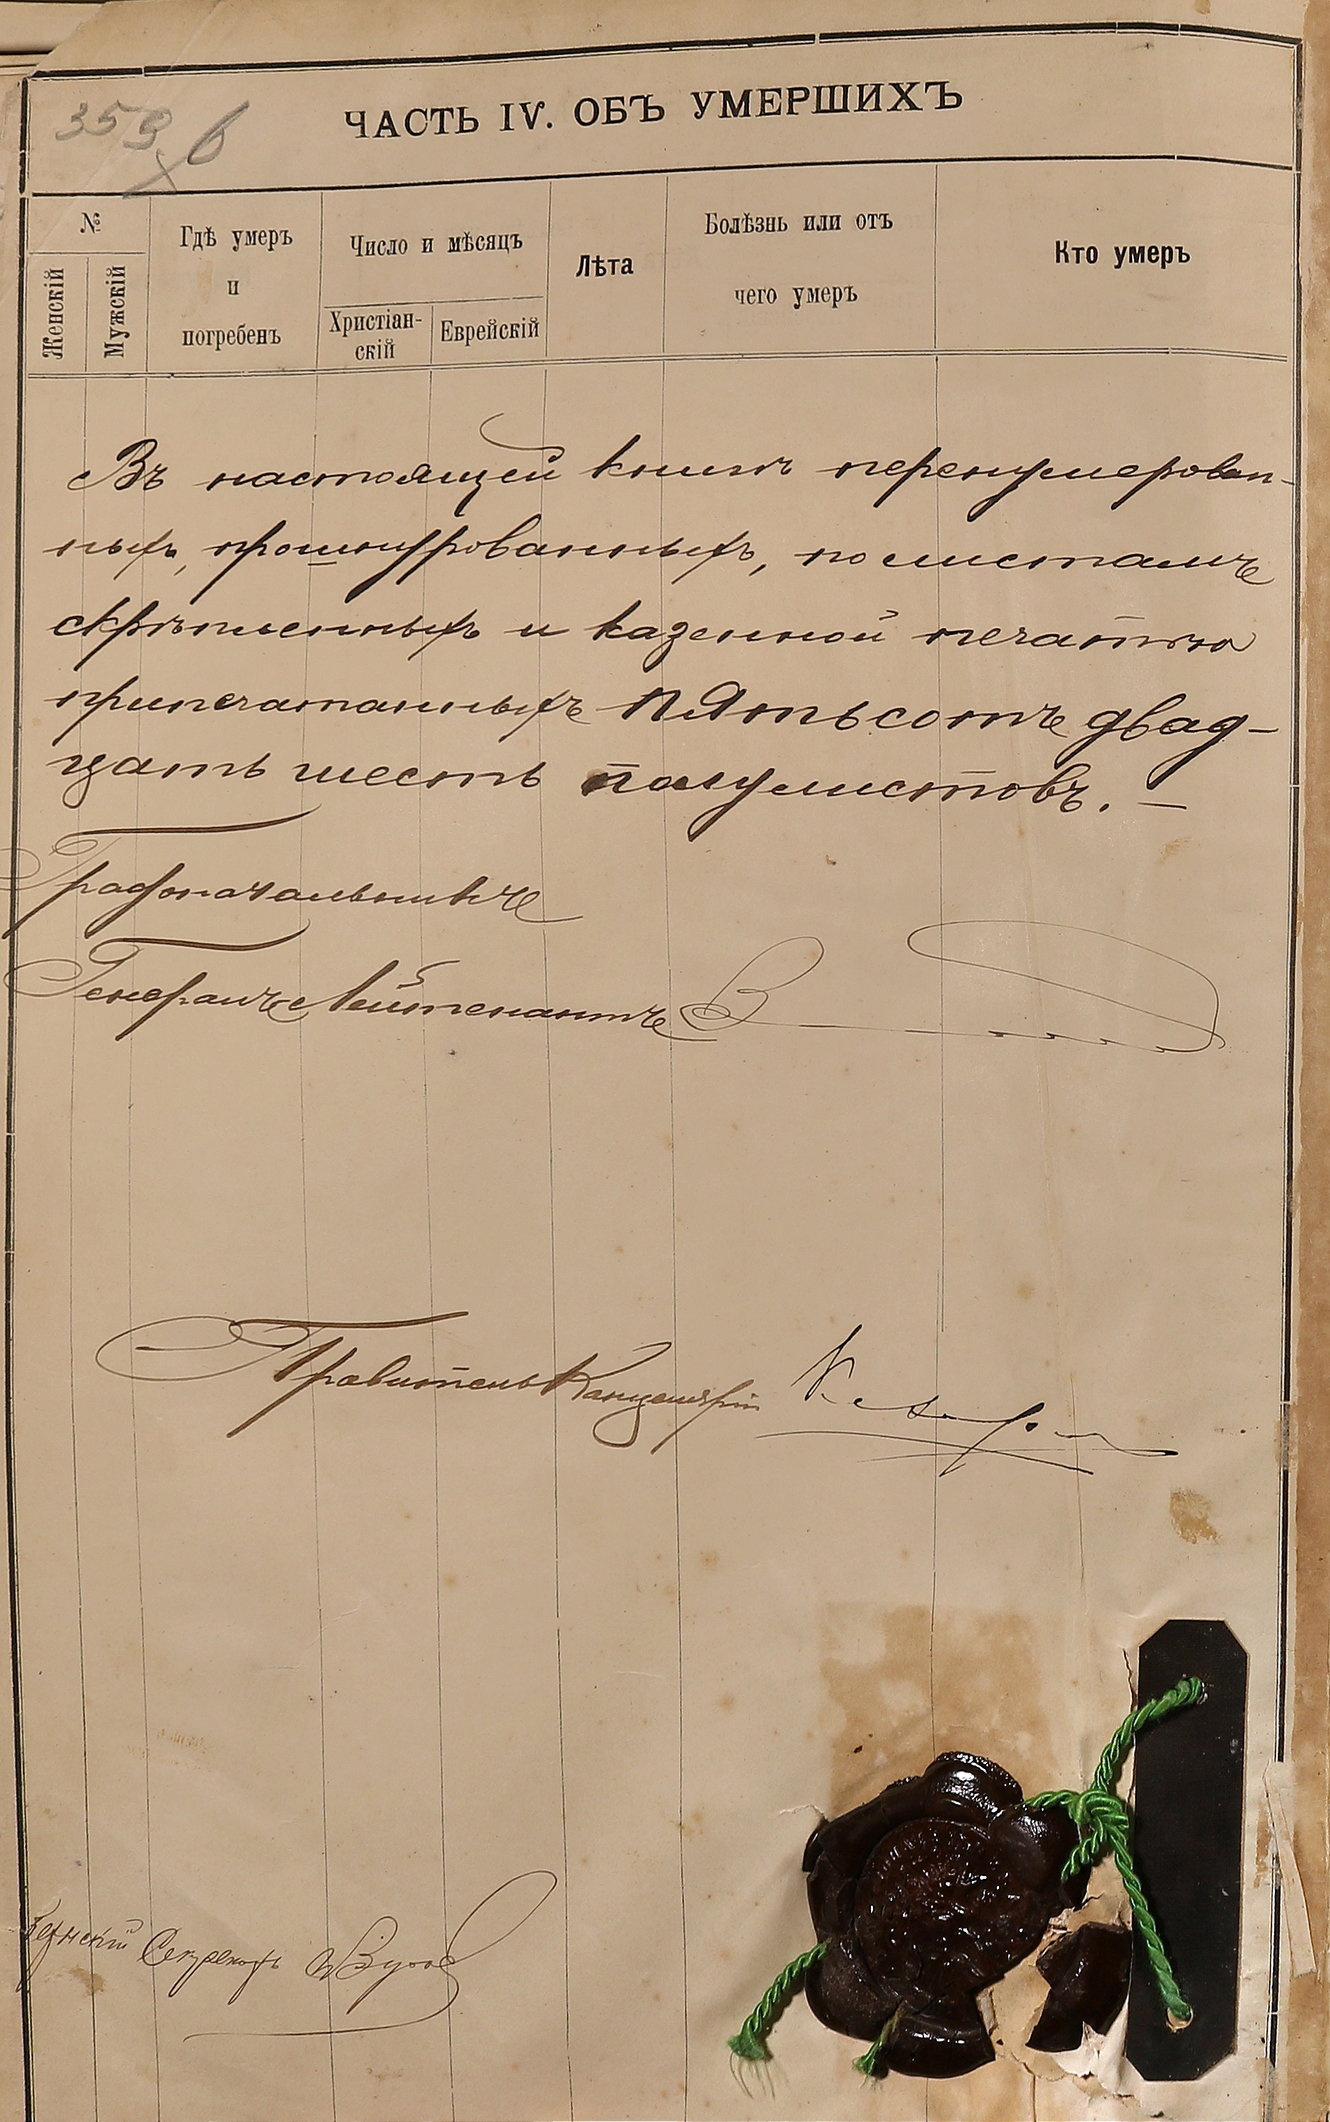 359 в
ЧАСТЬ IV. ОБЪ УМЕРШИХЪ
№
Женскій
Мужскій
Гдѣ умеръ
и
погребенъ
Число и мѣсяцъ
Христіан-
скій
Еврейскій
Лѣта
Болѣзнь или отъ
чего умеръ
Кто умеръ
Въ настоящей книгѣ перенумерован-
ныхъ, прошнурованныхъ, по листамъ
скрѣпленныхъ и казенной печатью
припечатанныхъ пятьсотъ двад-
цать шесть полулистовъ. —
Градоначальникъ
Генералъ Лейтенантъ
Правитель Канцеляріи
Секретарь